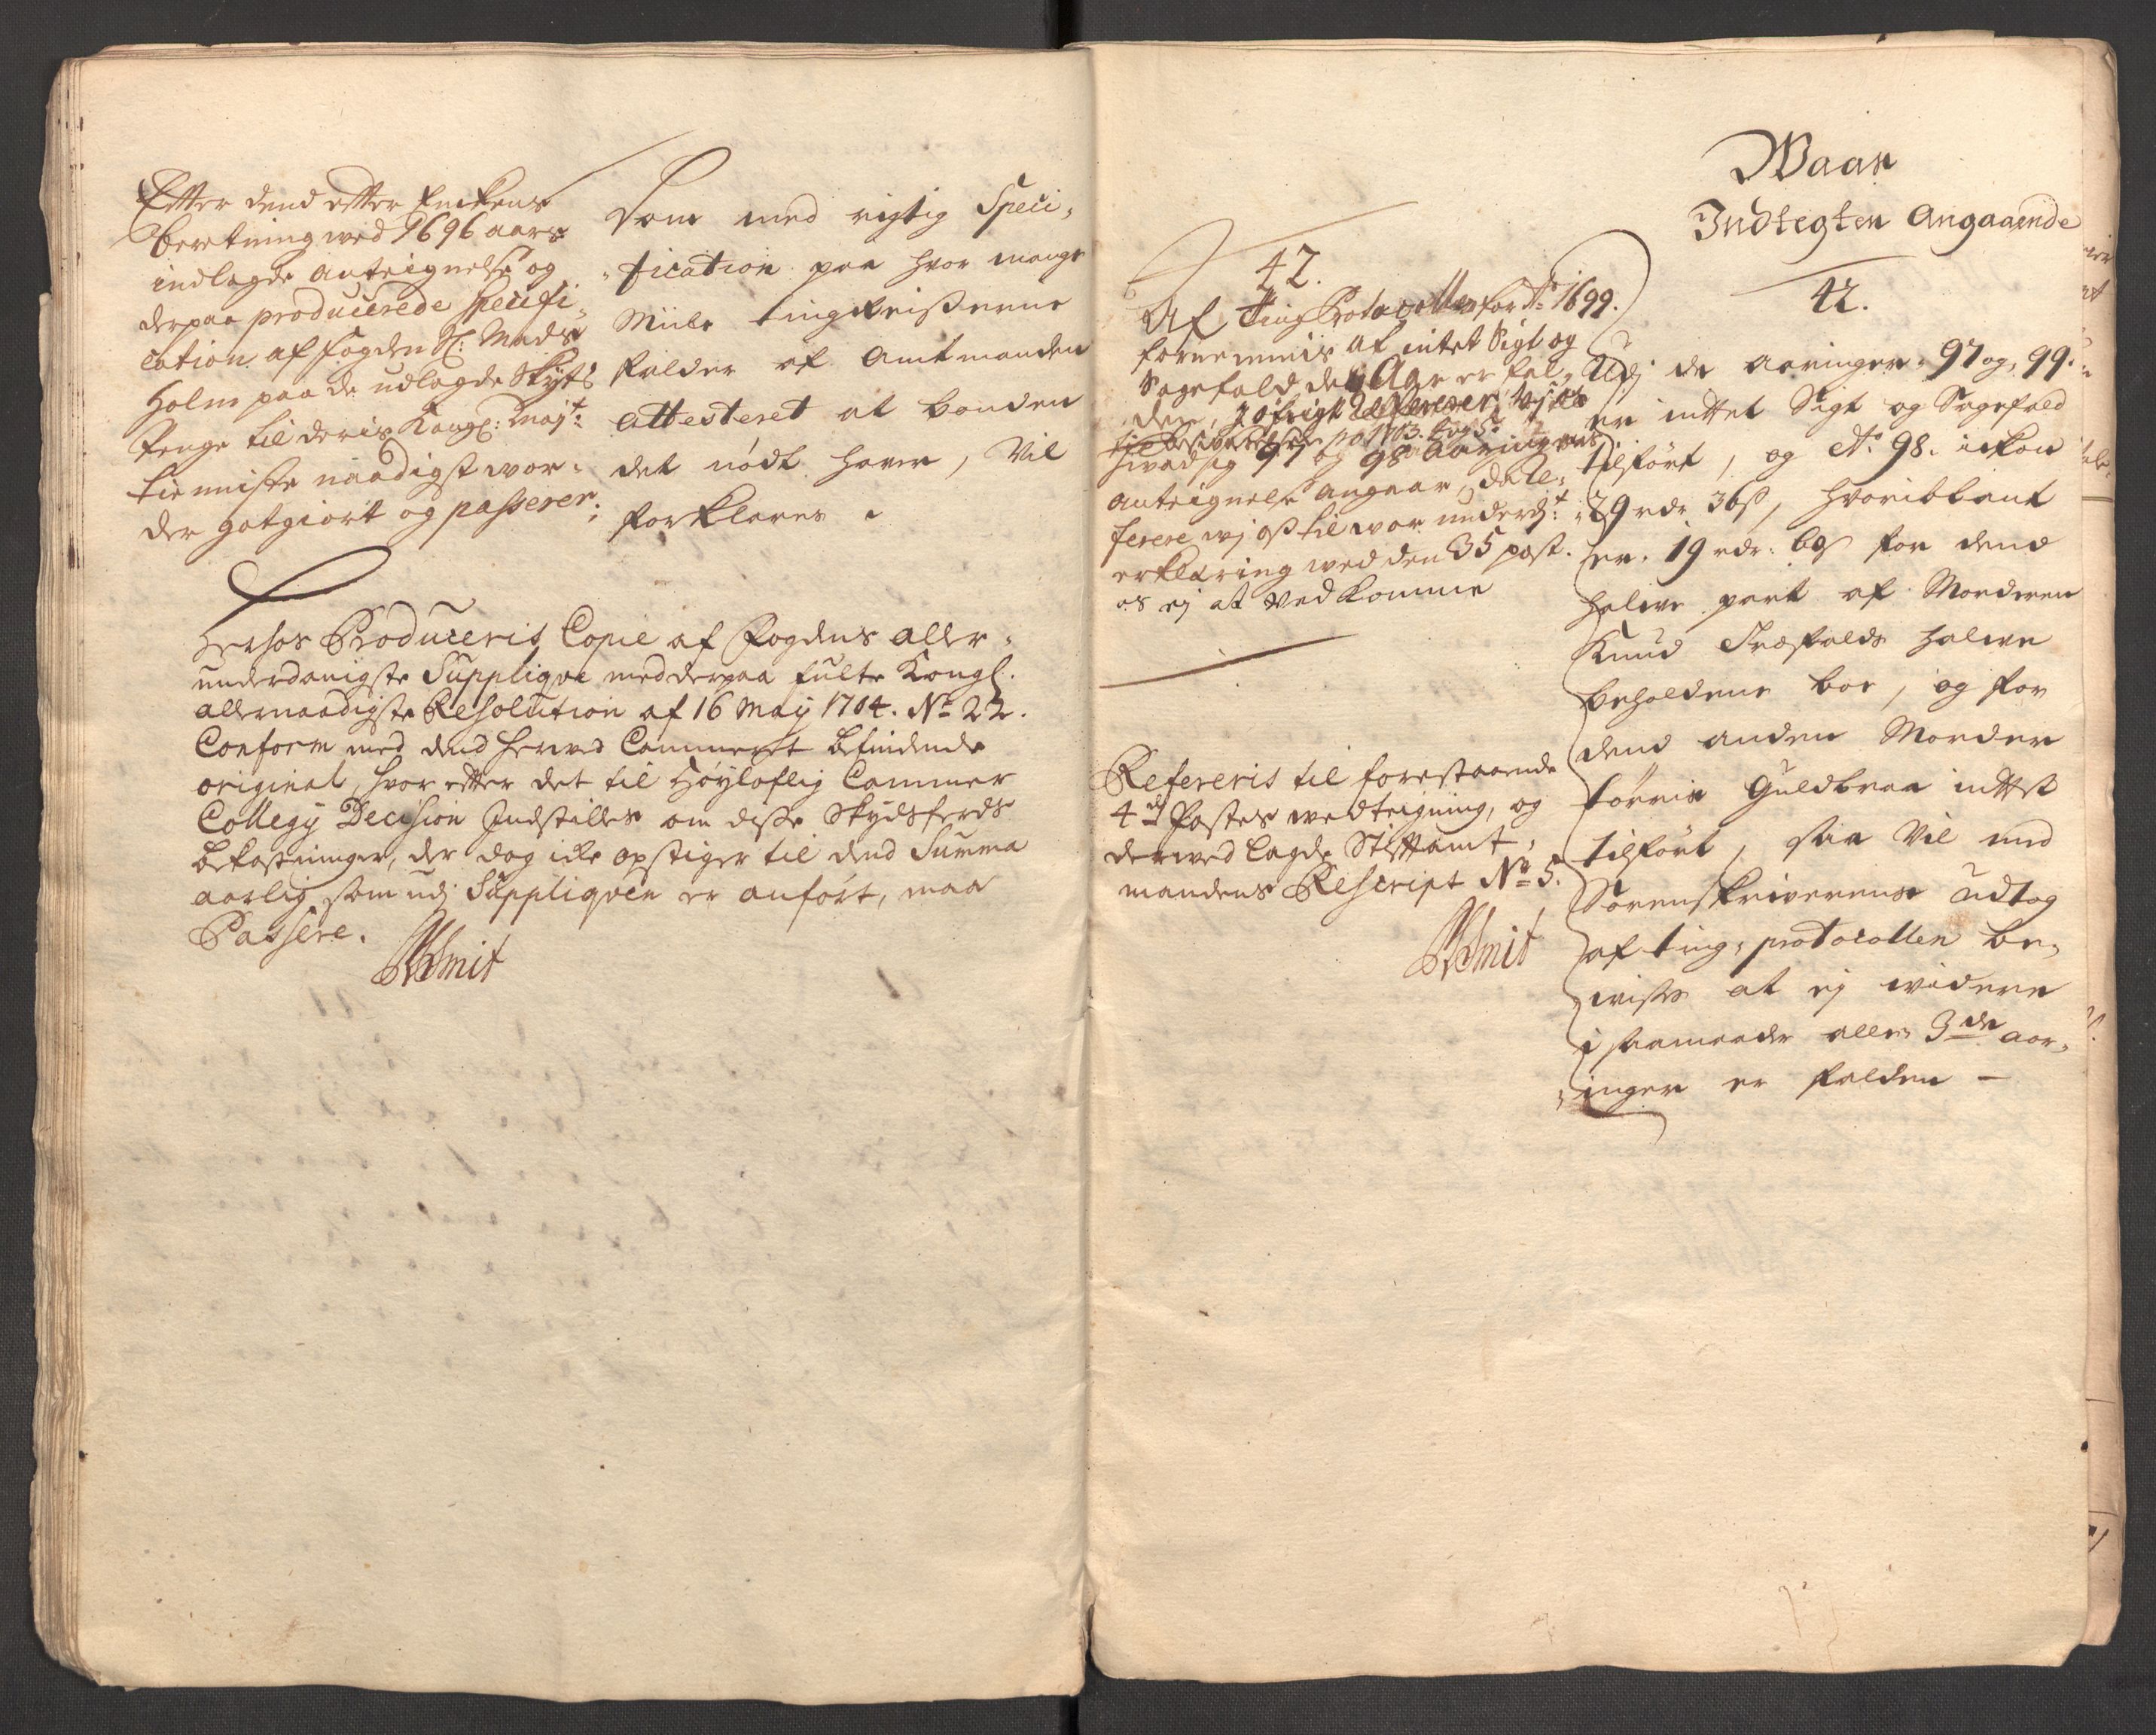 Etter dend etter Enckens
beretning wed 1696 aars
indlagde Anteignelse og
derpaa producerede specifi-
cation af fogden Sl: Mads
Holm paa de udlagde Skyts
Penge til deris Kongl: Mayt:
tienniste naadigst wor-
der gotgiort og passerer;
Som med rigtig Speci-
fication paa hvor mange
Miile tingReisserne
falder af Amtmanden
attesteret at bonden
det nödt haver, Vil
forklares
Herhos Produceris Copie af Fogdens aller-
underdanigste Suppliqve med derpaa fulte Kongl.
allernaadigste Resolution af 16 Maij 1704. No 22.
Conform med dend herved Cammeret befindende
original, hvor etter det til Höyloflig Cammer
Collegij Decision Indstilles om disse Skydsferds
bekostninger, der dog icke opstiger til dend Summa
aarlig som udj Suppliqven er anfört, maa
Passere.
Smit
42.
Af Ting Protocollen for Ao 1699.
fornemmis at intet Sigt og
Sagefald det Aar er fal-
den, I öfrigt Refererer Wj os
hvad sig 97 og 98 Aaringers
Anteignelse angaar, da Re-
ferere wj os til wor underd:t
erklæring wed den 35 post.
os ej at wedkomme
Refereris til forestaaende
4de Postes wedteigning, og
derwed lagde Stiftamt-
mandens Rescript No 5.
Smit
Waar
Indtegten Angaaende
42.
Udj de aaringer 97 og 99.
er intet Sigt og Sagefald
tilfört, og Ao 98. ickon
29 rdr 36 s, hvoriblant
er. 19 rdr: for dend
halve part af Morderen
Knud halve
beholdene boe, og for
dend anden Morder
Torris Guldbraa intet
tilfört, saa Vil med
Sorenskriverens udtog
af ting-protocollen be-
vises at ej widere
i saamaade alle 3de aar-
inger er falden -